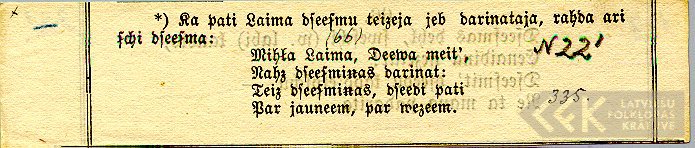 *) Ka pati Laima dseesmu teizeja jeb darinataja, rahda ari
schi dseesma: (66)
Mihļa Laima, Deewa meit', N22'
Nahz dseesmiņas darinat:
Teiz dseesmiņas, dseedi pati 335.
Par jauneem, par wezeem.
LFK LATVIEŠU
FOLKLORAS
KRĀTUVE